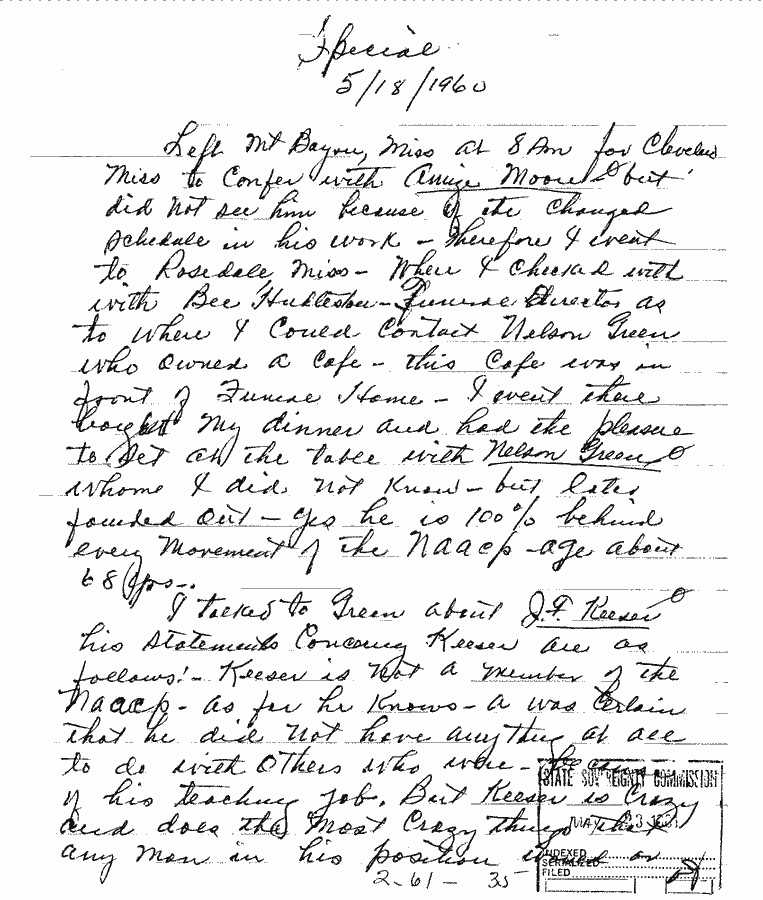 Special
5/18/1960
Left Mt Bayou, Miss at 8 Am for Cleveland
Miss to Confer with Amize Moore but
did Not see him because of the changed
schedule in his work - therefore I went
to Rosedale, Miss - Where I checked with
with Bee Huddleston - Funerae Director as
to where I Could Contact Nelson Green
who owned a Cafe - this Cafe was in
front of Funerae Home - I went there
bought My dinner and had the pleasure
to Set at the table with Nelson Green
Whome I did Not Know - but later
founded Out - yes he is 100% behind
every Movement of the NAACP - age about
68 yrs -.
I talked to Green about J.F. Keeser
his statements Concerng Keeser are as
follows! - Keeser is Not a member of the
NAACP - as far he Knows - a was Certain
that he did Not have anything at all
to do with Others who were -
of his teaching Job. But Keeser is Crazy
and does the Most Crazy things that
any Man in his position or
2-61-35
STATE SOVEREIGNTY COMMISSION
MAY 23
INDEXED
SERIALIZED
FILED